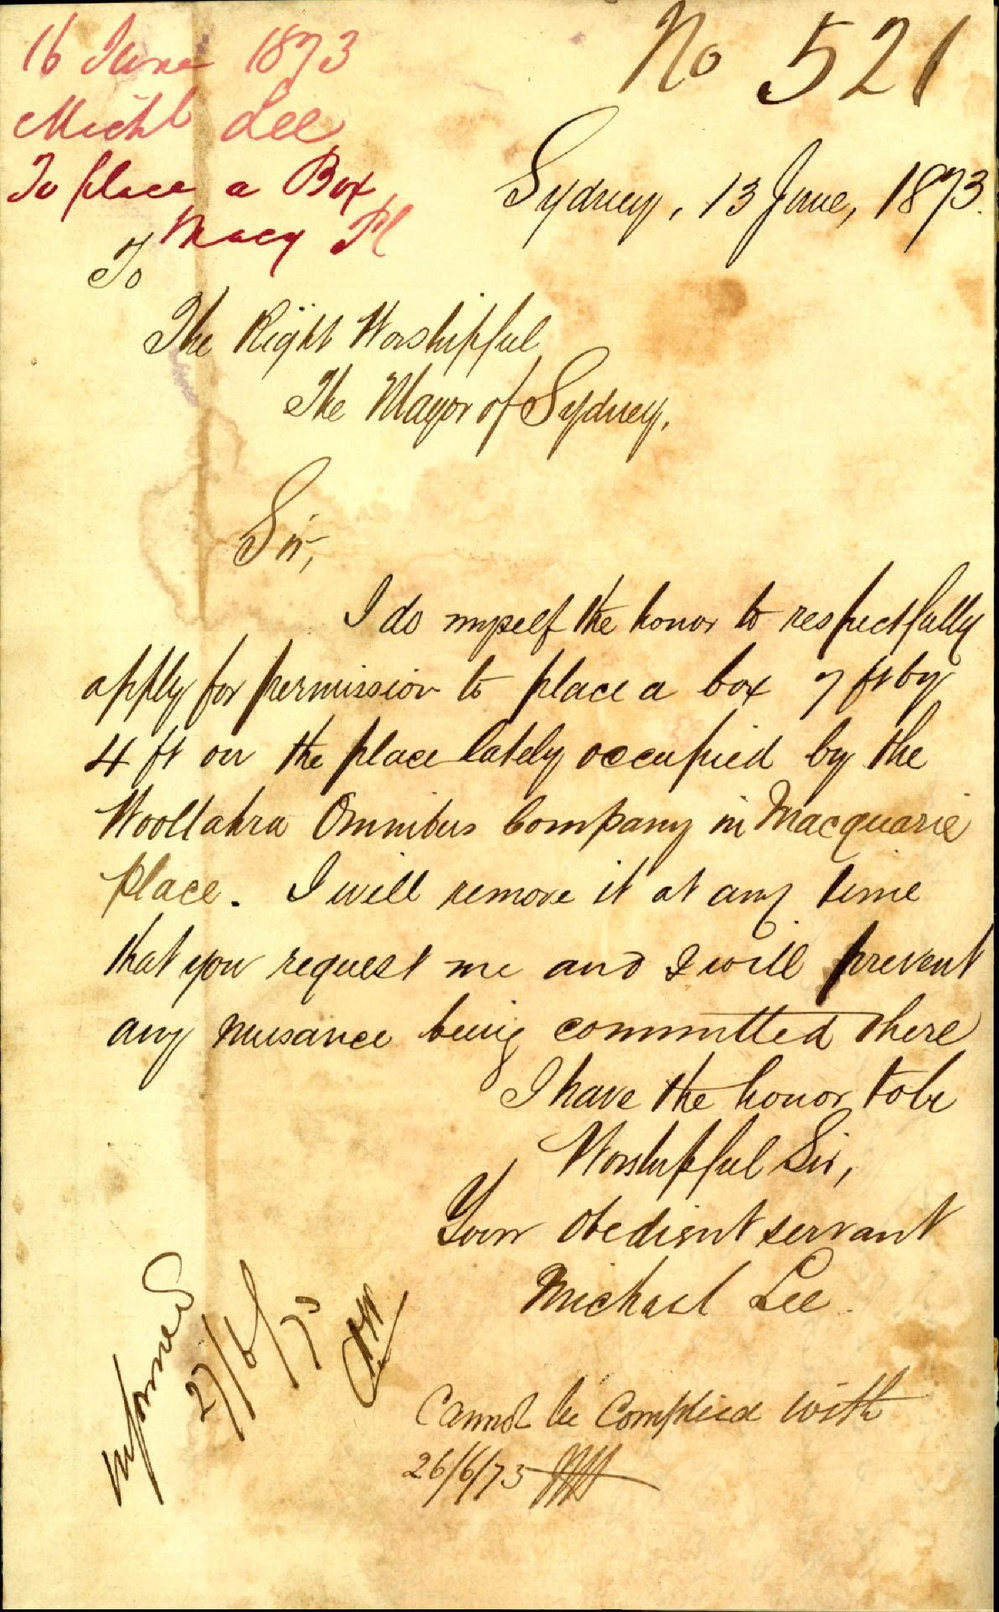 16 June 1873
Michl Lee
To place a Box
Macq Pl
No 521
Sydney, 13 June, 1873.
To
The Right Worshipful
The Mayor of Sydney,
Sir,
I do myself the honor to respectfully
apply for permission to place a box 7 ft by
4 ft on the place lately occupied by the
Woollahra Omnibus Company in Macquarie
place. I will remove it at any time
that you request me and I will prevent
any nuisance being committed there
I have the honor to be
Worshipful Sir,
Your obedient servant
Michael Lee.
Informed
27/6/73
Cannot be Complied with
26/6/73